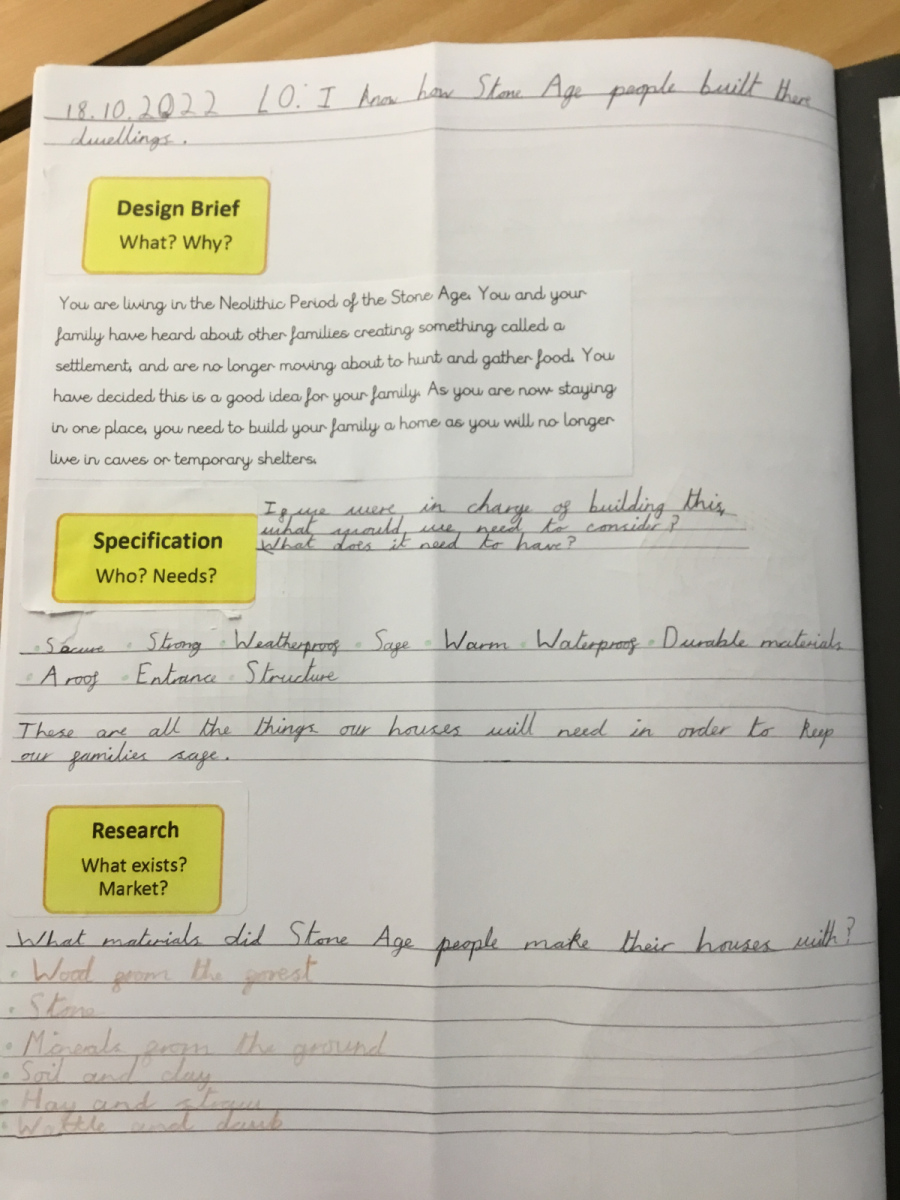 18.10.2022 LO: I know how Stone Age people built there
dwellings.
Design Brief
What? Why?
You are living in the Neolithic Period of the Stone Age. You and your
family have heard about other families creating something called a
settlement, and are no longer moving about to hunt and gather food. You
have decided this is a good idea for your family. As you are now staying
in one place, you need to build your family a home as you will no longer
live in caves or temporary shelters.
Specification
Who? Needs?
If we were in charge of building this,
what would we need to consider?
What does it need to have?
• Secure • Strong • Weatherproof • Safe • Warm • Waterproof • Durable materials
• A roof • Entrance • Structure
These are all the things our houses will need in order to keep
our families safe.
Research
What exists?
Market?
What materials did Stone Age people make their houses with?
• Wood from the forest
• Stone
• Minerals from the ground
• Soil and clay
• Hay and straw
• Wattle and daub